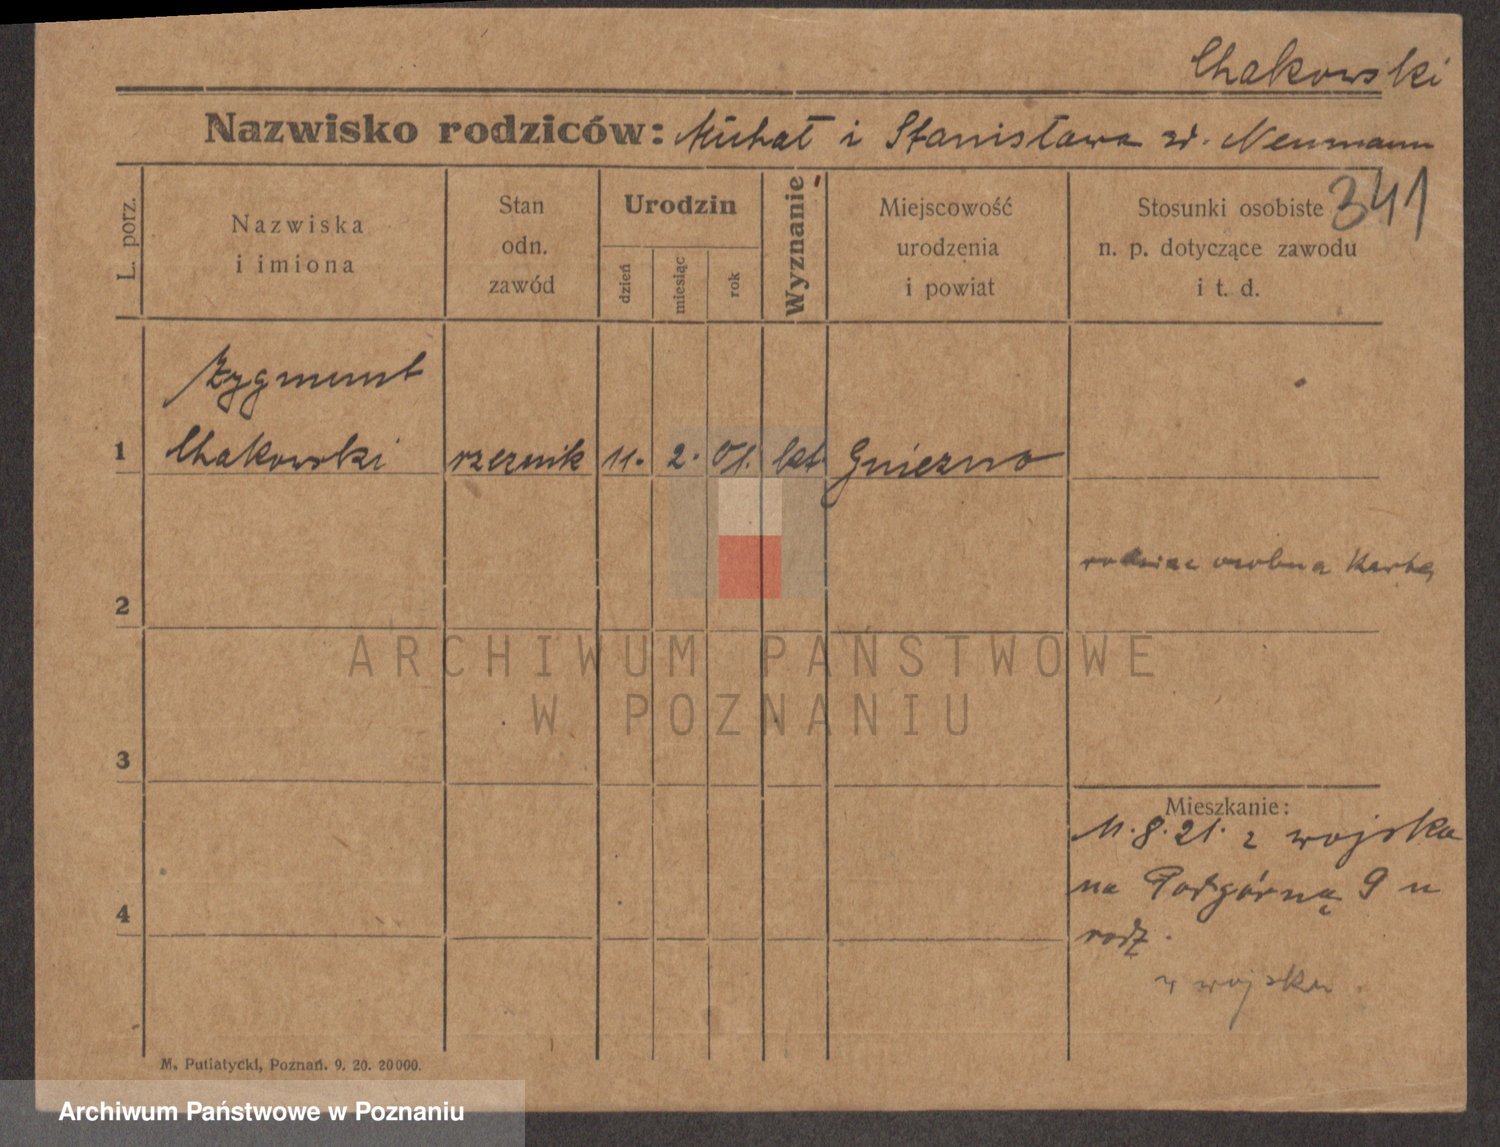 Chakowski
Nazwisko rodziców: Michał i Stanisława zd. Neumann
341
L. porz.
Nazwiska
i imiona
Stan
odn.
zawód
Urodzin
dzień
miesiąc
rok
Wyznanie
Miejscowość
urodzenia
i powiat
Stosunki osobiste
n. p. dotyczące zawodu
i t. d.
Zygmunt
1 Chakowski rzeźnik 11. 2. 01. kat Gniezno
osobna karta
2
ARCHIWUM PAŃSTWOWE
W POZNANIU
3
Mieszkanie:
11.8.21. z wojska
na Podgórną 9 u
rodz.
4
w wojsku.
M. Putiatycki, Poznań. 9. 20. 20000.
Archiwum Państwowe w Poznaniu